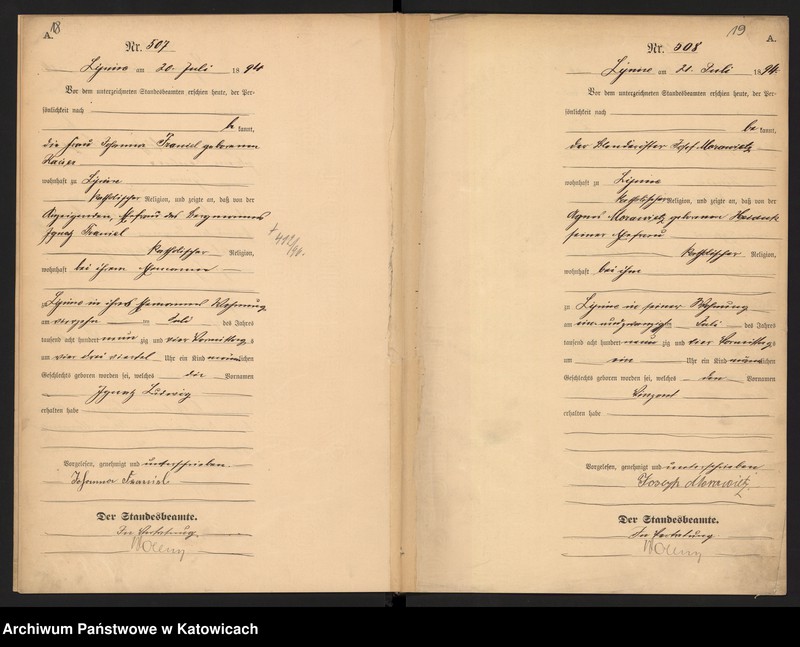 18
A.
Nr. 507
Lipine am 20. Juli 1894
Vor dem unterzeichneten Standesbeamten erschien heute, der Per-
sönlichkeit nach
be kannt,
die Frau Johanna Franiel geborenen
wohnhaft zu Lipine
katholischer Religion, und zeigte an, daß von der
Anzeigenden, Ehefrau des Bergmannes
Ignatz Franiel
katholischer Religion,
wohnhaft bei ihrem Ehemanne
zu Lipine in ihres Ehemannes Wohnung
am vierzehn ten Juli des Jahres
tausend acht hundert neun zig und vier Vormittag s
um vier drei viertel Uhr ein Kind männlichen
Geschlechts geboren worden sei, welches die Vornamen
Ignatz Ludwig
erhalten habe
Vorgelesen, genehmigt und unterschrieben
Johanna Franiel
Der Standesbeamte.
In Vertretung
19
A.
Nr. 508
Lipine am 21. Juli 1894.
Vor dem unterzeichneten Standesbeamten erschien heute, der Per-
sönlichkeit nach
be kannt,
der Josef Morawietz
wohnhaft zu Lipine
katholischer Religion, und zeigte an, daß von der
Agnes Morawietz geborenen
seiner Ehefrau
katholischer Religion,
wohnhaft bei ihm
zu Lipine in seiner Wohnung
am ein und zwanzigsten Juli des Jahres
tausend acht hundert neun zig und vier Vormittag s
um ein Uhr ein Kind männlichen
Geschlechts geboren worden sei, welches den Vornamen
Vinzent
erhalten habe
Vorgelesen, genehmigt und unterschrieben
Joseph Morawietz
Der Standesbeamte.
In Vertretung
Archiwum Państwowe w Katowicach